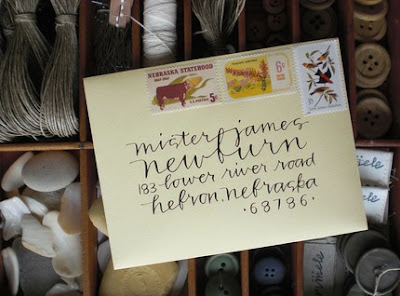 NEBRASKA STATEHOOD
5¢
6¢
mister james
newburn
183 lower river road
hebron, nebraska
·68786·